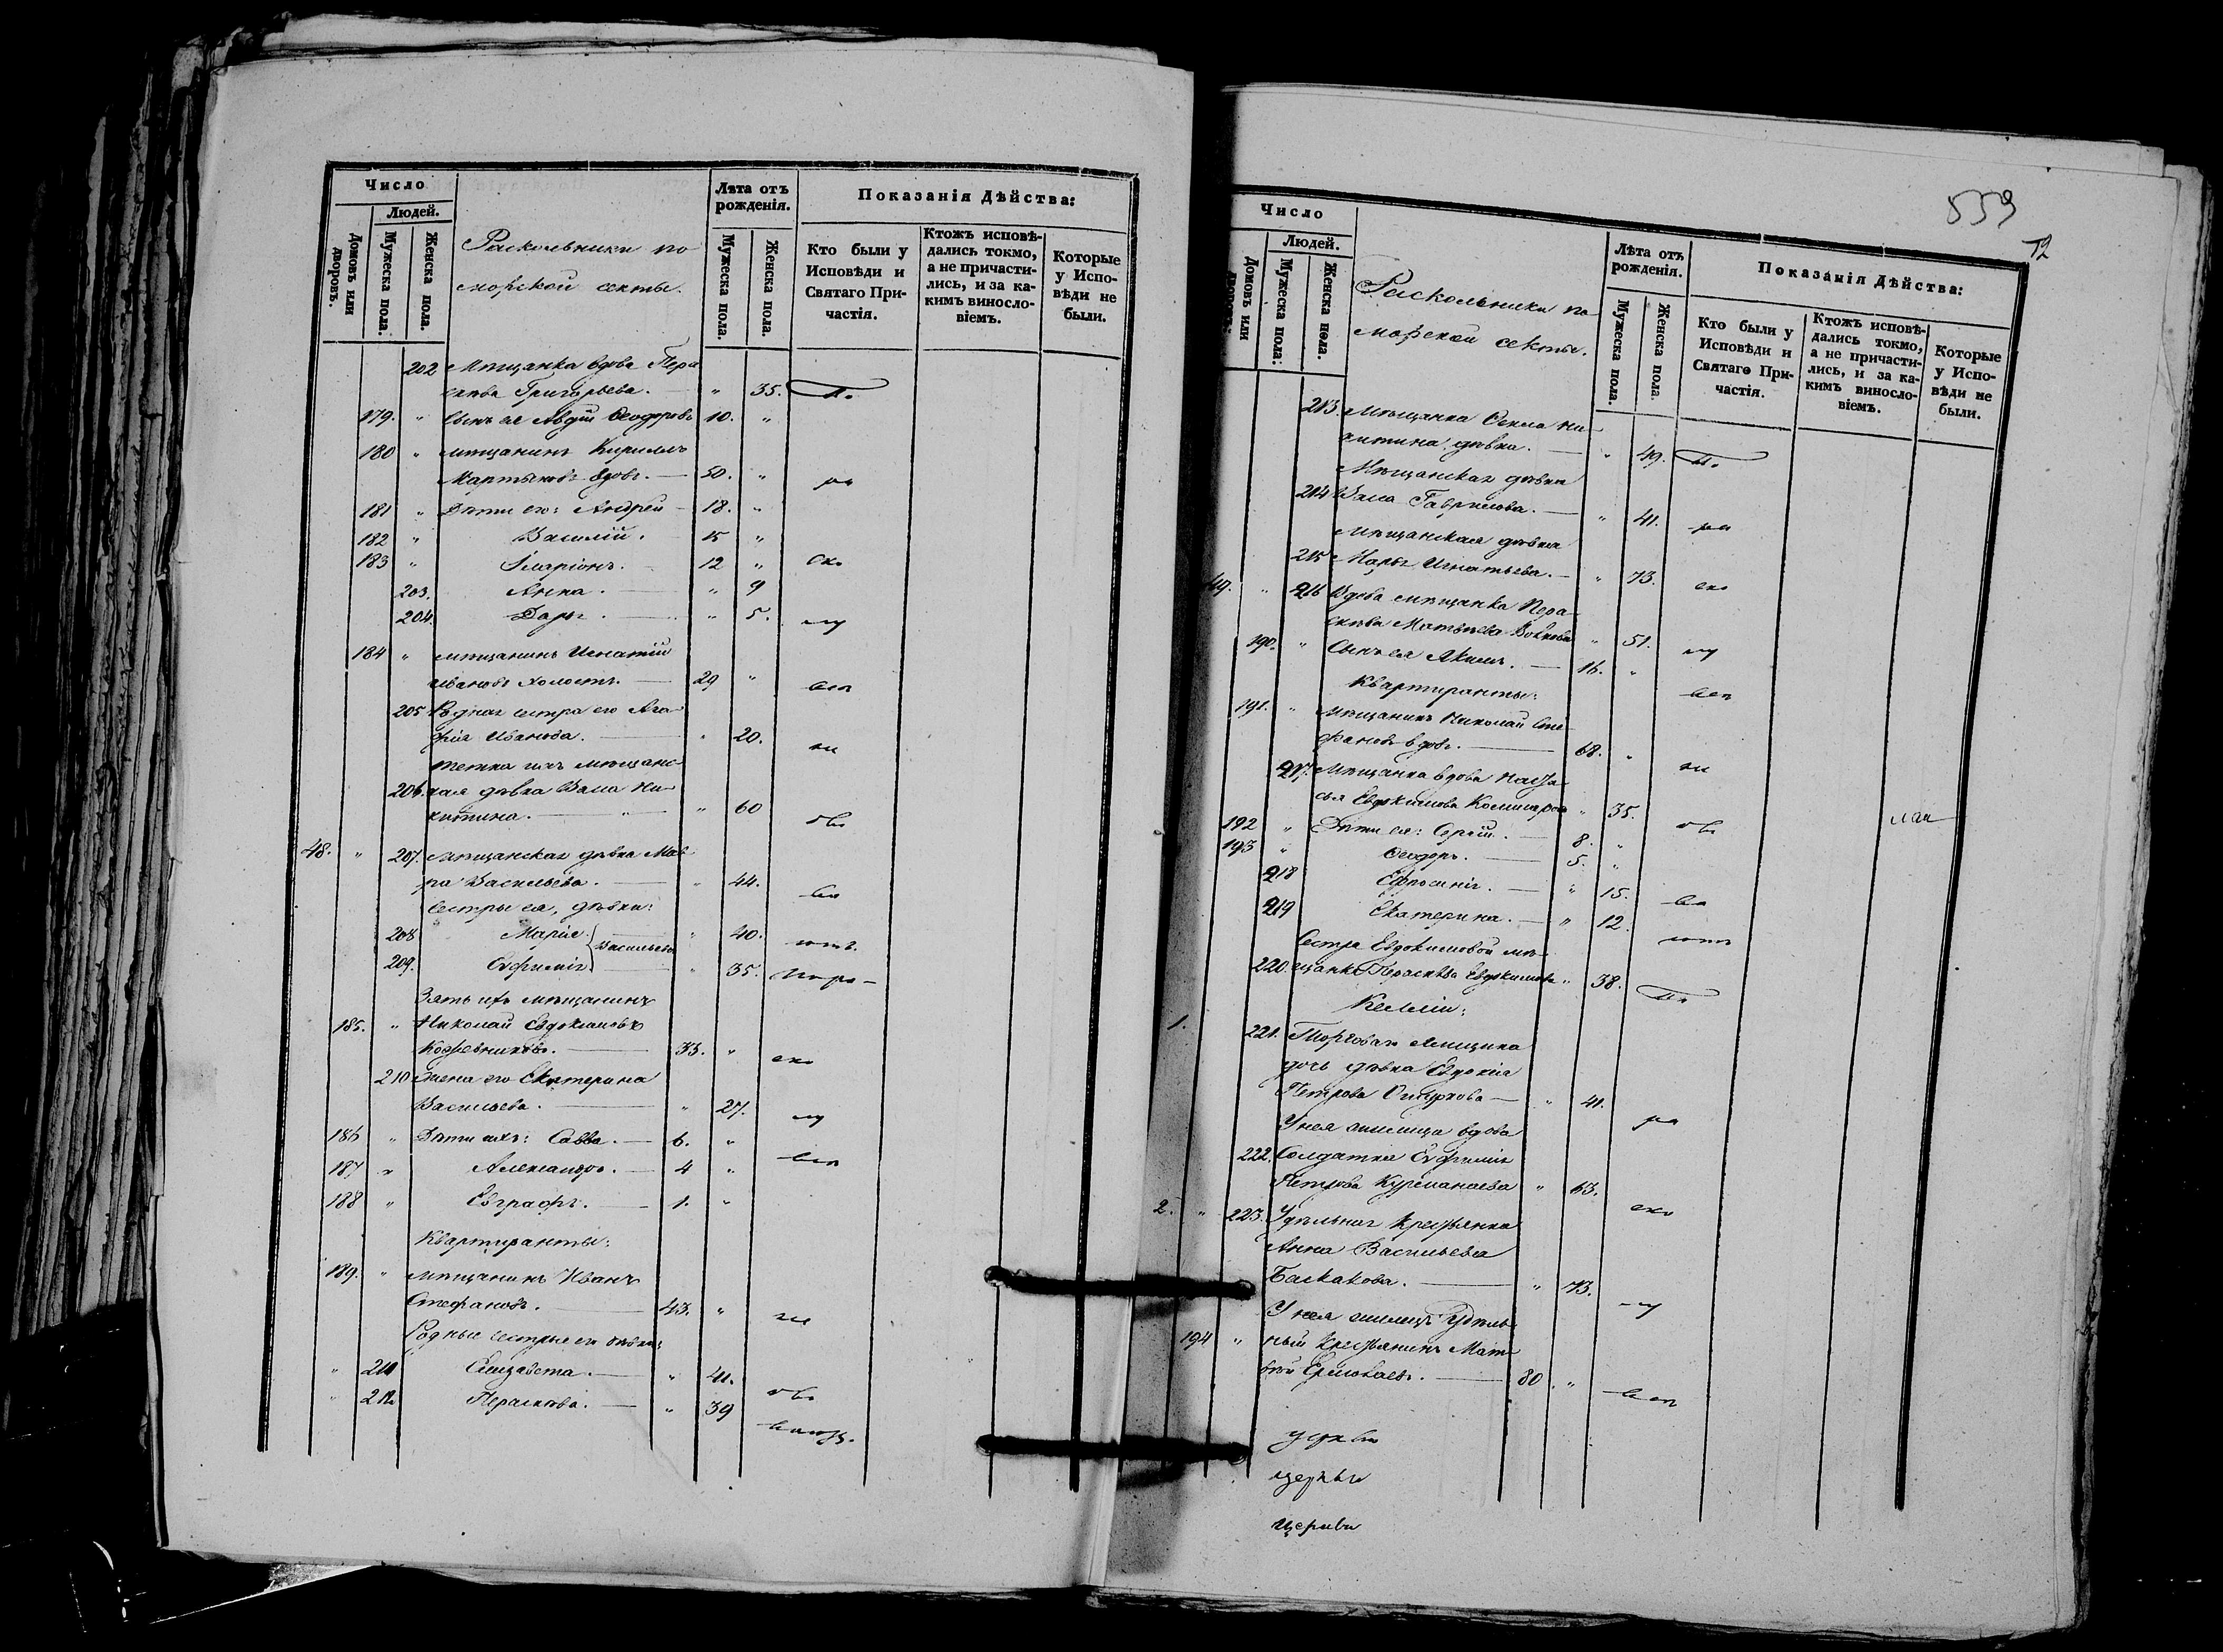 Число
Людей.
Домовъ или дворовъ.
Мужеска пола.
Женска пола.
Раскольники по
морской секты.
Лѣта отъ рожденія.
Мужеска пола.
Женска пола.
Показанія Дѣйства:
Кто были у Исповѣди и Святаго Причастія.
Ктожъ исповѣдались токмо, а не причастились, и за какимъ винословіемъ.
Которые у Исповѣди не были.
202 Мѣщанка вдова Пера
скева Григорьева. — " 35. По
179. " Сынъ ея Авдій Ѳеодоровъ 10. "
180 " мѣщанинъ Кириллъ
Мартыновъ вдовъ. — 50. " ра
181 " Дѣти его: Андрей — 18. "
182 " Василій. 15 "
183 " Іларіонъ. — 12 " ско
203. Анна. — " 9
204. Дарья. — " 5. му
184 " мѣщанинъ Игнатій
Ивановъ холостъ. — 29 "
205 Родная сестра его Ага
фія Иванова. — " 20.
тетка ихъ мѣщанс
206. кая дѣвка Васса Ни
китина. — " 60
48. " 207. мѣщанская дѣвка Мав
ра Васильева. — " 44.
Сестры ея, дѣвки:
208 Марія. } Васильевы " 40.
209. Евфимія " 35.
Зять ихъ мѣщанинъ
185. " Николай Евдокимовъ
Кожевниковъ. — 33. " ско
210 Жена его Екатерина
Васильева. — " 27. му
186 " Дѣти ихъ: Савва. — 6. "
187 " Александръ. — 4 "
188 " Евграфъ. — 1. "
Квартиранты:
189. " мѣщанинъ Иванъ
Стефановъ. — 43. "
Родные сестры его дѣвки:
" 211 Елизавета. — " 41.
" 212 Параскева. — " 39
559
12
Число
Людей.
Домовъ или дворовъ.
Мужеска пола.
Женска пола.
Раскольники по
морской секты.
Лѣта отъ рожденія.
Мужеска пола.
Женска пола.
Показанія Дѣйства:
Кто были у Исповѣди и Святаго Причастія.
Ктожъ исповѣдались токмо, а не причастились, и за какимъ винословіемъ.
Которые у Исповѣди не были.
213. Мѣщанка Ѳекла Ни
китина дѣвка. — " 49. По
Мѣщанская дѣвка
214 Васса Гаврилова. — " 41. ра
Мѣщанская дѣвка
215 Марья Игнатьева. — " 73. ско
49. " 216 Вдова мѣщанка Пера
скева Матвѣева " 51. му
190. " Сынъ ея Якимъ. — 16. "
Квартиранты:
191. " Мѣщанинъ Николай Сте
фановъ вдовъ. — 68. "
217. Мѣщанка вдова Наста
сья Евдокимова " 35.
192 " Дѣти ея: Сергій. — 8. "
193 " Ѳеодоръ. — 5. "
218 Ефросинія. — " 15.
219 Екатерина. — " 12.
Сестра Евдокимовой мѣ
220. щанка Параскева Евдокимова " 38. По
Келліи:
1. 221. Торговая
дочь дѣвка Евдокія
Петрова — " 41. ра
У нея жилица вдова
222. Солдатка Евфимія
Петрова Курманаева " 63. ско
2. " 223. Удѣльная крестьянка
Анна Васильева
Баскакова. — " 73. му
У нея жилецъ Удѣль
194 " ный крестьянинъ Мат
вѣй Ермолаевъ. — 80 "
церкви
церкви
церкви